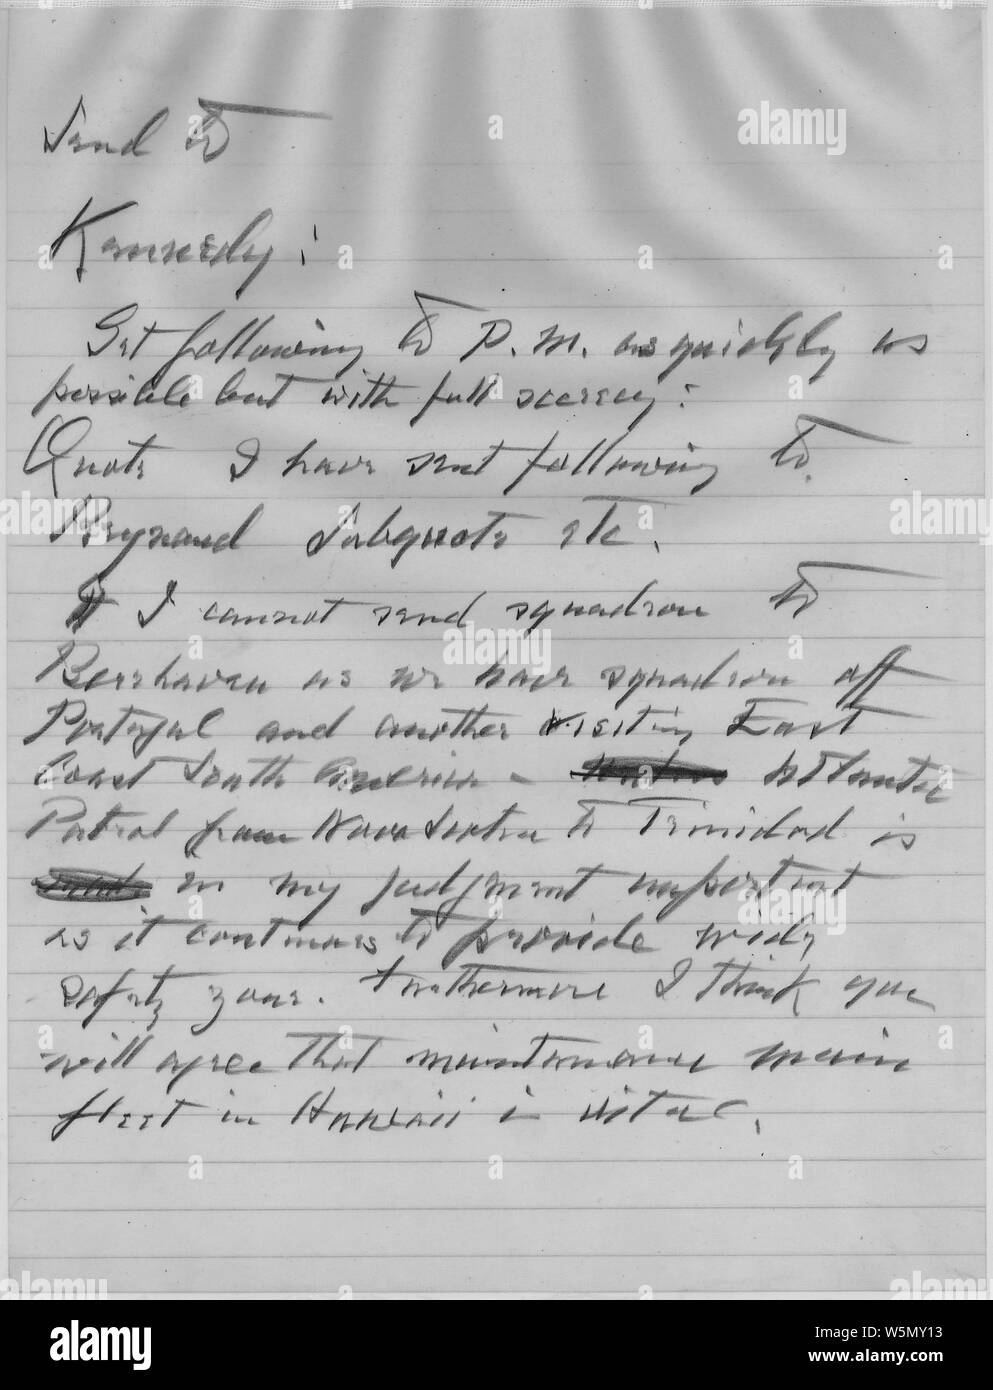 Send to
Kennedy:
Get following to P.M. as quickly as
possible but with full secrecy:
Quote I have sent following to
Reynaud Subquote etc.
I cannot send squadron to
Berehaven as we have squadron off
Portugal and another visiting East
Coast South America - Atlantic
Patrol from Nova Scotia to Trinidad is
in my judgment important
as it continues to provide wide
safety zone. Furthermore I think you
will agree that maintenance main
fleet in Hawaii is vital.
alamy
W5MY13
www.alamy.com